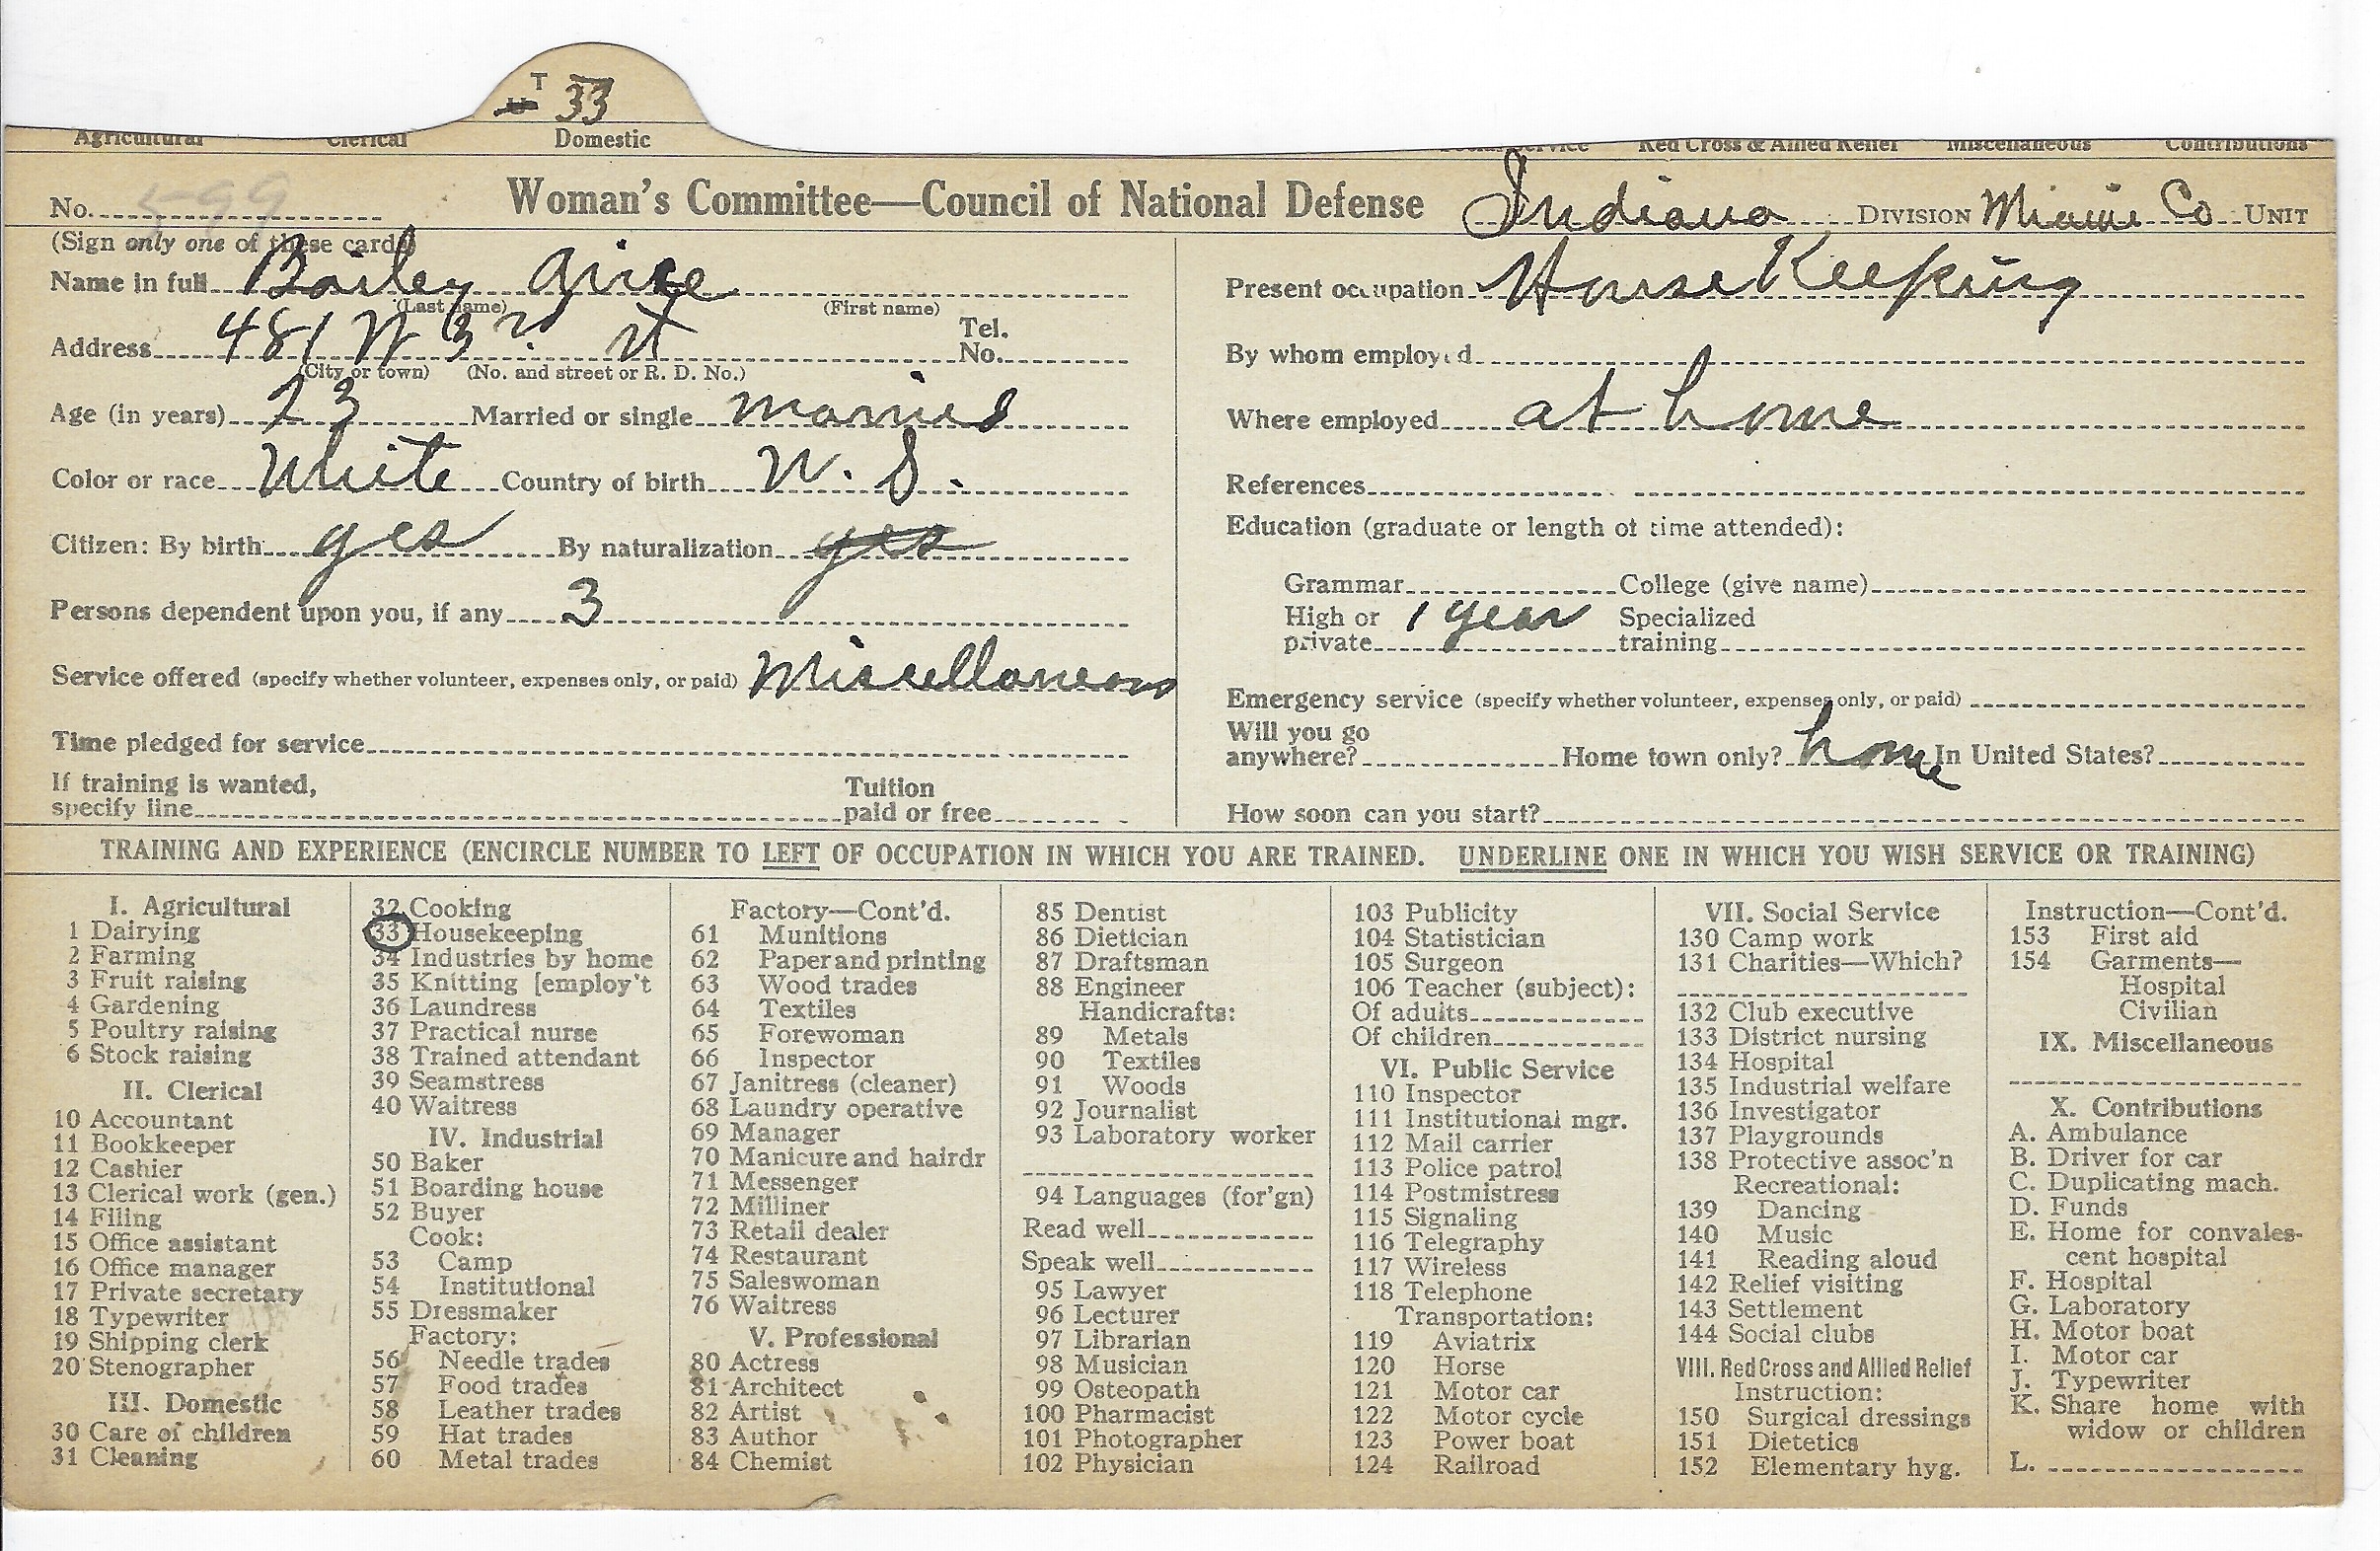 T
33
Agricultural Clerical Domestic Social Service Red Cross & Allied Relief Miscellaneous Contributions
No. 599 Woman's Committee—Council of National Defense Indiana DIVISION Miami Co UNIT
(Sign only one of these cards)
Name in full Bailey
(Last name) (First name)
Address 481 W 3rd St Tel. No.
(City or town) (No. and street or R. D. No.)
Age (in years) 23 Married or single married
Color or race White Country of birth U. S.
Citizen: By birth yes By naturalization yes
Persons dependent upon you, if any 3
Service offered (specify whether volunteer, expenses only, or paid) Miscellaneous
Time pledged for service
If training is wanted,
specify line Tuition paid or free
Present occupation House Keeping
By whom employed
Where employed at home
References
Education (graduate or length of time attended):
Grammar College (give name)
High or private 1 year Specialized training
Emergency service (specify whether volunteer, expenses only, or paid)
Will you go
anywhere? Home town only? home In United States?
How soon can you start?
TRAINING AND EXPERIENCE (ENCIRCLE NUMBER TO LEFT OF OCCUPATION IN WHICH YOU ARE TRAINED. UNDERLINE ONE IN WHICH YOU WISH SERVICE OR TRAINING)
I. Agricultural
1 Dairying
2 Farming
3 Fruit raising
4 Gardening
5 Poultry raising
6 Stock raising
II. Clerical
10 Accountant
11 Bookkeeper
12 Cashier
13 Clerical work (gen.)
14 Filing
15 Office assistant
16 Office manager
17 Private secretary
18 Typewriter
19 Shipping clerk
20 Stenographer
III. Domestic
30 Care of children
31 Cleaning
32 Cooking
33 Housekeeping
34 Industries by home
35 Knitting [employ't
36 Laundress
37 Practical nurse
38 Trained attendant
39 Seamstress
40 Waitress
IV. Industrial
50 Baker
51 Boarding house
52 Buyer
Cook:
53 Camp
54 Institutional
55 Dressmaker
Factory:
56 Needle trades
57 Food trades
58 Leather trades
59 Hat trades
60 Metal trades
Factory—Cont'd.
61 Munitions
62 Paper and printing
63 Wood trades
64 Textiles
65 Forewoman
66 Inspector
67 Janitress (cleaner)
68 Laundry operative
69 Manager
70 Manicure and hairdr
71 Messenger
72 Milliner
73 Retail dealer
74 Restaurant
75 Saleswoman
76 Waitress
V. Professional
80 Actress
81 Architect
82 Artist
83 Author
84 Chemist
85 Dentist
86 Dietician
87 Draftsman
88 Engineer
Handicrafts:
89 Metals
90 Textiles
91 Woods
92 Journalist
93 Laboratory worker
94 Languages (for'gn)
Read well
Speak well
95 Lawyer
96 Lecturer
97 Librarian
98 Musician
99 Osteopath
100 Pharmacist
101 Photographer
102 Physician
103 Publicity
104 Statistician
105 Surgeon
106 Teacher (subject):
Of adults
Of children
VI. Public Service
110 Inspector
111 Institutional mgr.
112 Mail carrier
113 Police patrol
114 Postmistress
115 Signaling
116 Telegraphy
117 Wireless
118 Telephone
Transportation:
119 Aviatrix
120 Horse
121 Motor car
122 Motor cycle
123 Power boat
124 Railroad
VII. Social Service
130 Camp work
131 Charities—Which?
132 Club executive
133 District nursing
134 Hospital
135 Industrial welfare
136 Investigator
137 Playgrounds
138 Protective assoc'n
Recreational:
139 Dancing
140 Music
141 Reading aloud
142 Relief visiting
143 Settlement
144 Social clubs
VIII. Red Cross and Allied Relief
Instruction:
150 Surgical dressings
151 Dietetics
152 Elementary hyg.
Instruction—Cont'd.
153 First aid
154 Garments—
Hospital
Civilian
IX. Miscellaneous
X. Contributions
A. Ambulance
B. Driver for car
C. Duplicating mach.
D. Funds
E. Home for convales-
cent hospital
F. Hospital
G. Laboratory
H. Motor boat
I. Motor car
J. Typewriter
K. Share home with
widow or children
L.